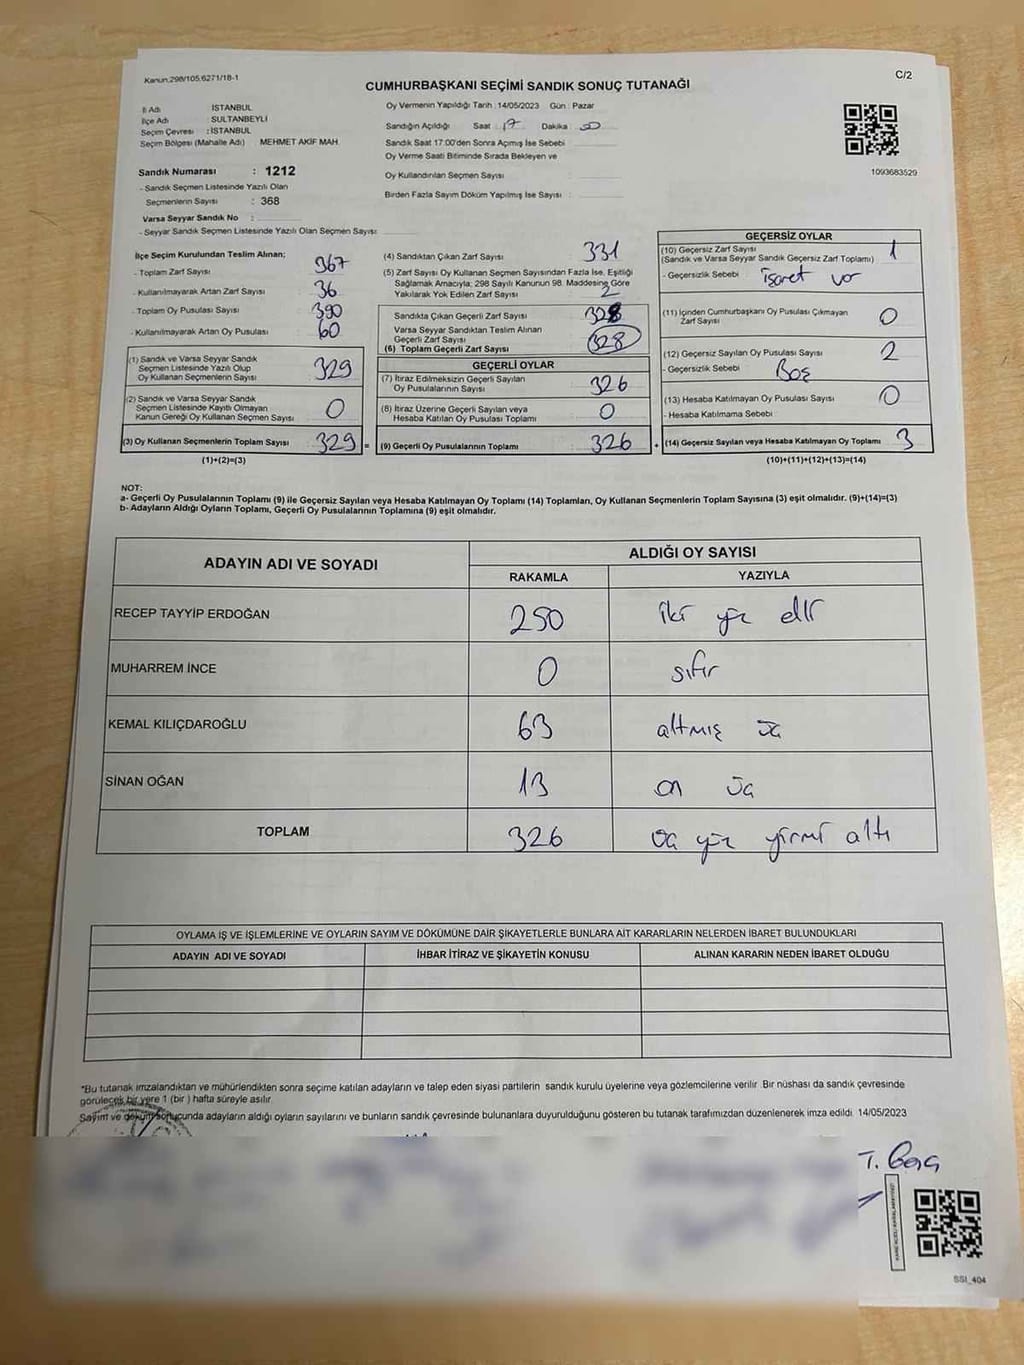 Kanun,298/105;6271/18-1
C/2
CUMHURBAŞKANI SEÇİMİ SANDIK SONUÇ TUTANAĞI
İl Adı İSTANBUL
İlçe Adı SULTANBEYLİ
Seçim Çevresi : İSTANBUL
Seçim Bölgesi (Mahalle Adı) MEHMET AKİF MAH.
Sandık Numarası : 1212
- Sandık Seçmen Listesinde Yazılı Olan
Seçmenlerin Sayısı : 368
Varsa Seyyar Sandık No :
- Seyyar Sandık Seçmen Listesinde Yazılı Olan Seçmen Sayısı
Oy Vermenin Yapıldığı Tarih : 14/05/2023 Gün : Pazar
Sandığın Açıldığı Saat : 17 Dakika : 50
Sandık Saat 17:00'den Sonra Açımış İse Sebebi
Oy Verme Saati Bitiminde Sırada Bekleyen ve
Oy Kullandırılan Seçmen Sayısı :
Birden Fazla Sayım Döküm Yapılmış İse Sayısı :
1093683529
İlçe Seçim Kurulundan Teslim Alınan;
- Toplam Zarf Sayısı 367
- Kullanılmayarak Artan Zarf Sayısı 36
- Toplam Oy Pusulası Sayısı 390
- Kullanılmayarak Artan Oy Pusulası 60
(1) Sandık ve Varsa Seyyar Sandık
Seçmen Listesinde Yazılı Olup
Oy Kullanan Seçmenlerin Sayısı 329
(2) Sandık ve Varsa Seyyar Sandık
Seçmen Listesinde Kayıtlı Olmayan
Kanun Gereği Oy Kullanan Seçmen Sayısı 0
(3) Oy Kullanan Seçmenlerin Toplam Sayısı 329 =
(1)+(2)=(3)
(4) Sandıktan Çıkan Zarf Sayısı 331
(5) Zarf Sayısı Oy Kullanan Seçmen Sayısından Fazla İse, Eşitliği
Sağlamak Amacıyla; 298 Sayılı Kanunun 98. Maddesine Göre
Yakılarak Yok Edilen Zarf Sayısı 2
Sandıkta Çıkan Geçerli Zarf Sayısı 328
Varsa Seyyar Sandıktan Teslim Alınan
Geçerli Zarf Sayısı
(6) Toplam Geçerli Zarf Sayısı 328
GEÇERLİ OYLAR
(7) İtiraz Edilmeksizin Geçerli Sayılan
Oy Pusulalarının Sayısı 326
(8) İtiraz Üzerine Geçerli Sayılan veya
Hesaba Katılan Oy Pusulası Toplamı 0
(9) Geçerli Oy Pusulalarının Toplamı 326 +
GEÇERSİZ OYLAR
(10) Geçersiz Zarf Sayısı 1
(Sandık ve Varsa Seyyar Sandık Geçersiz Zarf Toplamı)
- Geçersizlik Sebebi işaret var
(11) İçinden Cumhurbaşkanı Oy Pusulası Çıkmayan
Zarf Sayısı 0
(12) Geçersiz Sayılan Oy Pusulası Sayısı 2
- Geçersizlik Sebebi Boş
(13) Hesaba Katılmayan Oy Pusulası Sayısı 0
- Hesaba Katılmama Sebebi
(14) Geçersiz Sayılan veya Hesaba Katılmayan Oy Toplamı 3
(10)+(11)+(12)+(13)=(14)
NOT:
a- Geçerli Oy Pusulalarının Toplamı (9) ile Geçersiz Sayılan veya Hesaba Katılmayan Oy Toplamı (14) Toplamları, Oy Kullanan Seçmenlerin Toplam Sayısına (3) eşit olmalıdır. (9)+(14)=(3)
b- Adayların Aldığı Oyların Toplamı, Geçerli Oy Pusulalarının Toplamına (9) eşit olmalıdır.
ADAYIN ADI VE SOYADI ALDIĞI OY SAYISI
RAKAMLA YAZIYLA
RECEP TAYYİP ERDOĞAN 250 iki yüz elli
MUHARREM İNCE 0 sıfır
KEMAL KILIÇDAROĞLU 63 altmış üç
SİNAN OĞAN 13 on üç
TOPLAM 326 üç yüz yirmi altı
OYLAMA İŞ VE İŞLEMLERİNE VE OYLARIN SAYIM VE DÖKÜMÜNE DAİR ŞİKAYETLERLE BUNLARA AİT KARARLARIN NELERDEN İBARET BULUNDUKLARI
ADAYIN ADI VE SOYADI İHBAR İTİRAZ VE ŞİKAYETİN KONUSU ALINAN KARARIN NEDEN İBARET OLDUĞU
*Bu tutanak imzalandıktan ve mühürlendikten sonra seçime katılan adayların ve talep eden siyasi partilerin sandık kurulu üyelerine veya gözlemcilerine verilir. Bir nüshası da sandık çevresinde
görülecek bir yere 1 (bir ) hafta süreyle asılır.
Sayım ve döküm sonucunda adayların aldığı oyların sayılarını ve bunların sandık çevresinde bulunanlara duyurulduğunu gösteren bu tutanak tarafımızdan düzenlenerek imza edildi. 14/05/2023
SSI_404